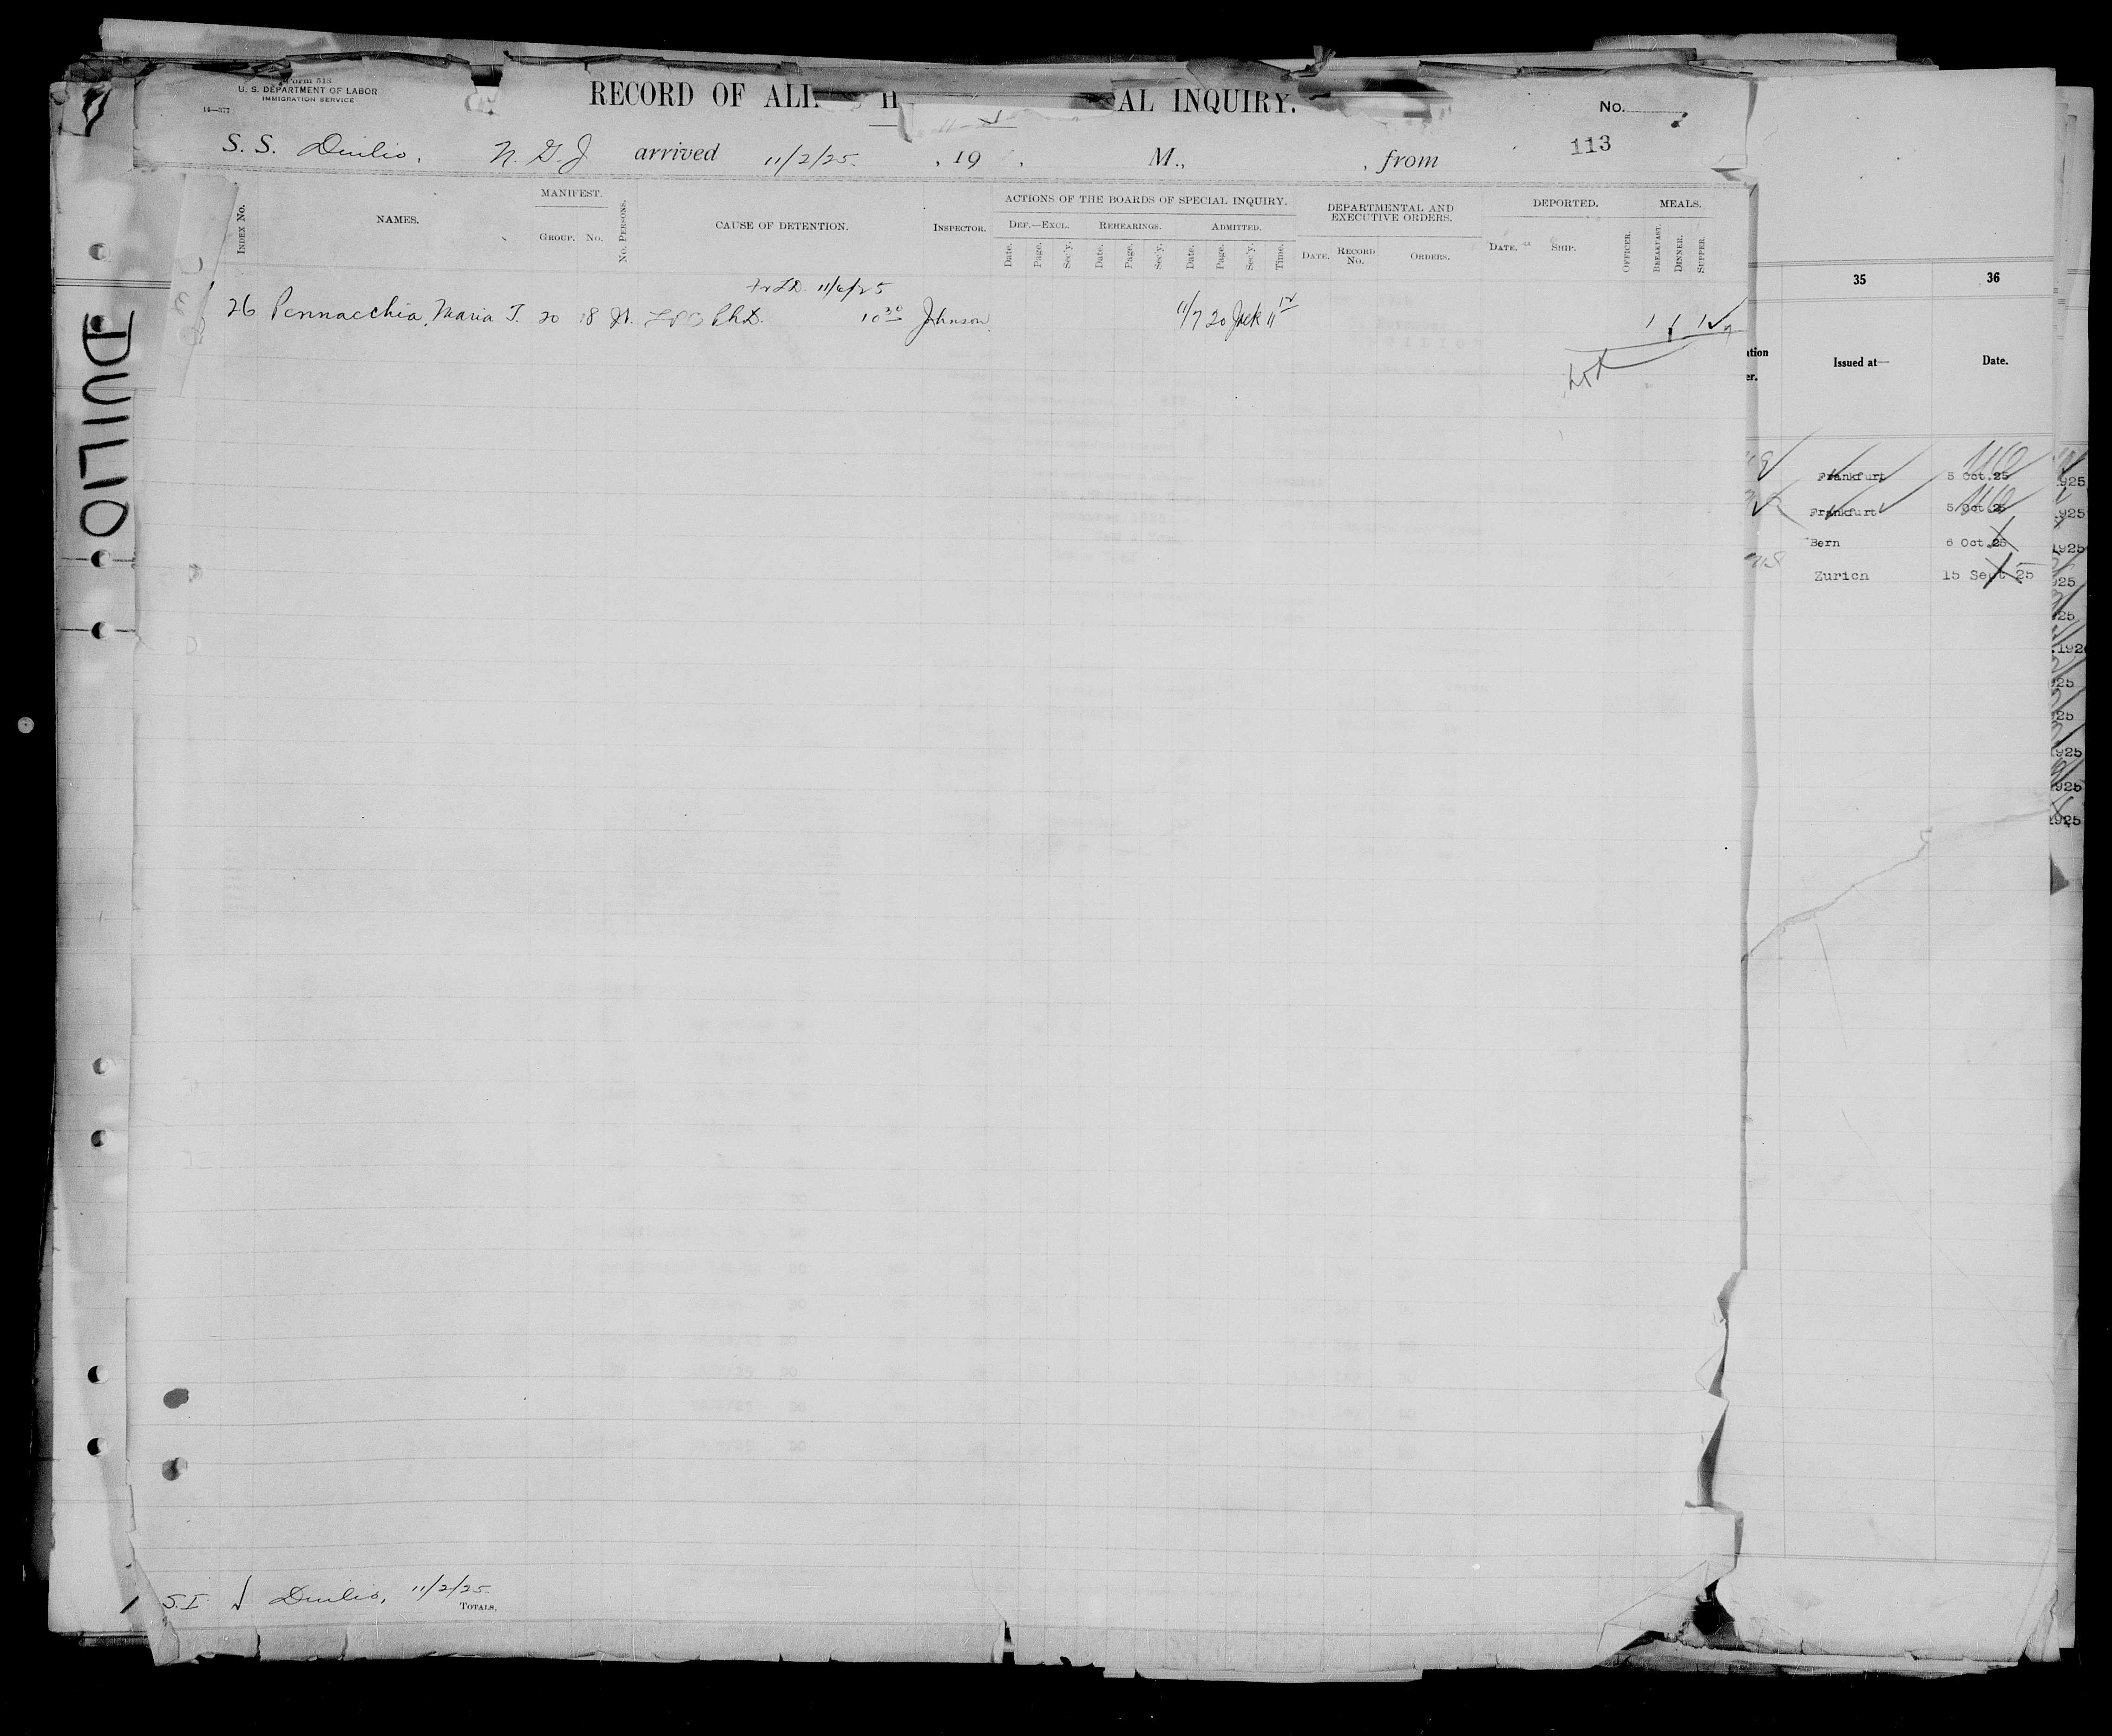 Form 518
U. S. DEPARTMENT OF LABOR
IMMIGRATION SERVICE
14—377
RECORD OF ALI H AL INQUIRY.
No.
113
S. S. Duilio, N. G. I arrived 11/2/25. , 19 , M., , from
INDEX No.
NAMES.
MANIFEST.
GROUP. No.
No. PERSONS.
CAUSE OF DETENTION.
INSPECTOR.
ACTIONS OF THE BOARDS OF SPECIAL INQUIRY.
DEF.—EXCL. REHEARINGS. ADMITTED.
Date. Page. Sec'y. Date. Page. Sec'y. Date. Page. Sec'y. Time.
DEPARTMENTAL AND EXECUTIVE ORDERS.
DATE. RECORD No. ORDERS.
DEPORTED.
DATE. SHIP.
OFFICER.
MEALS.
BREAKFAST. DINNER. SUPPER.
11/6/25
26 Pennacchia, Maria T. 20 18 LPC 10 30 Johnson 11/7 20 Jack 11 1 1 1
DUILIO
35 36
Issued at— Date.
Frankfurt 5 Oct.25
Frankfurt 5 Oct 25
Bern 6 Oct.25
Zurich 15 Sept 25
S.I. Duilio, 11/2/25
TOTALS,